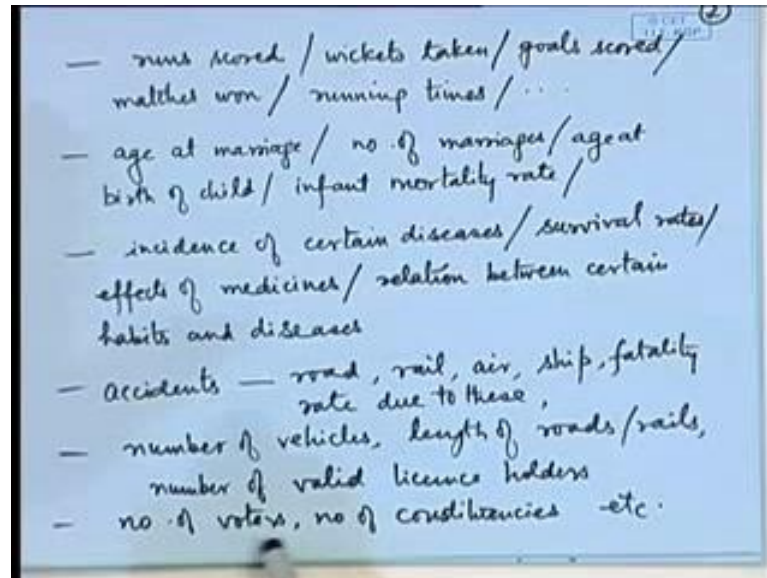 2
© CET
I.I.T. KGP
— runs scored / wickets taken / goals scored /
matches won / running times / ....
— age at marriage / no. of marriages / age at
birth of child / infant mortality rate /
— incidence of certain diseases / survival rates /
effects of medicines / relation between certain
habits and diseases
— accidents — road, rail, air, ship, fatality
rate due to these,
— number of vehicles, length of roads/rails,
number of valid licence holders
— no. of voters, no. of constituencies etc.